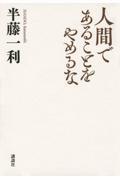 人間で
あることを
やめるな
半藤一利
講談社